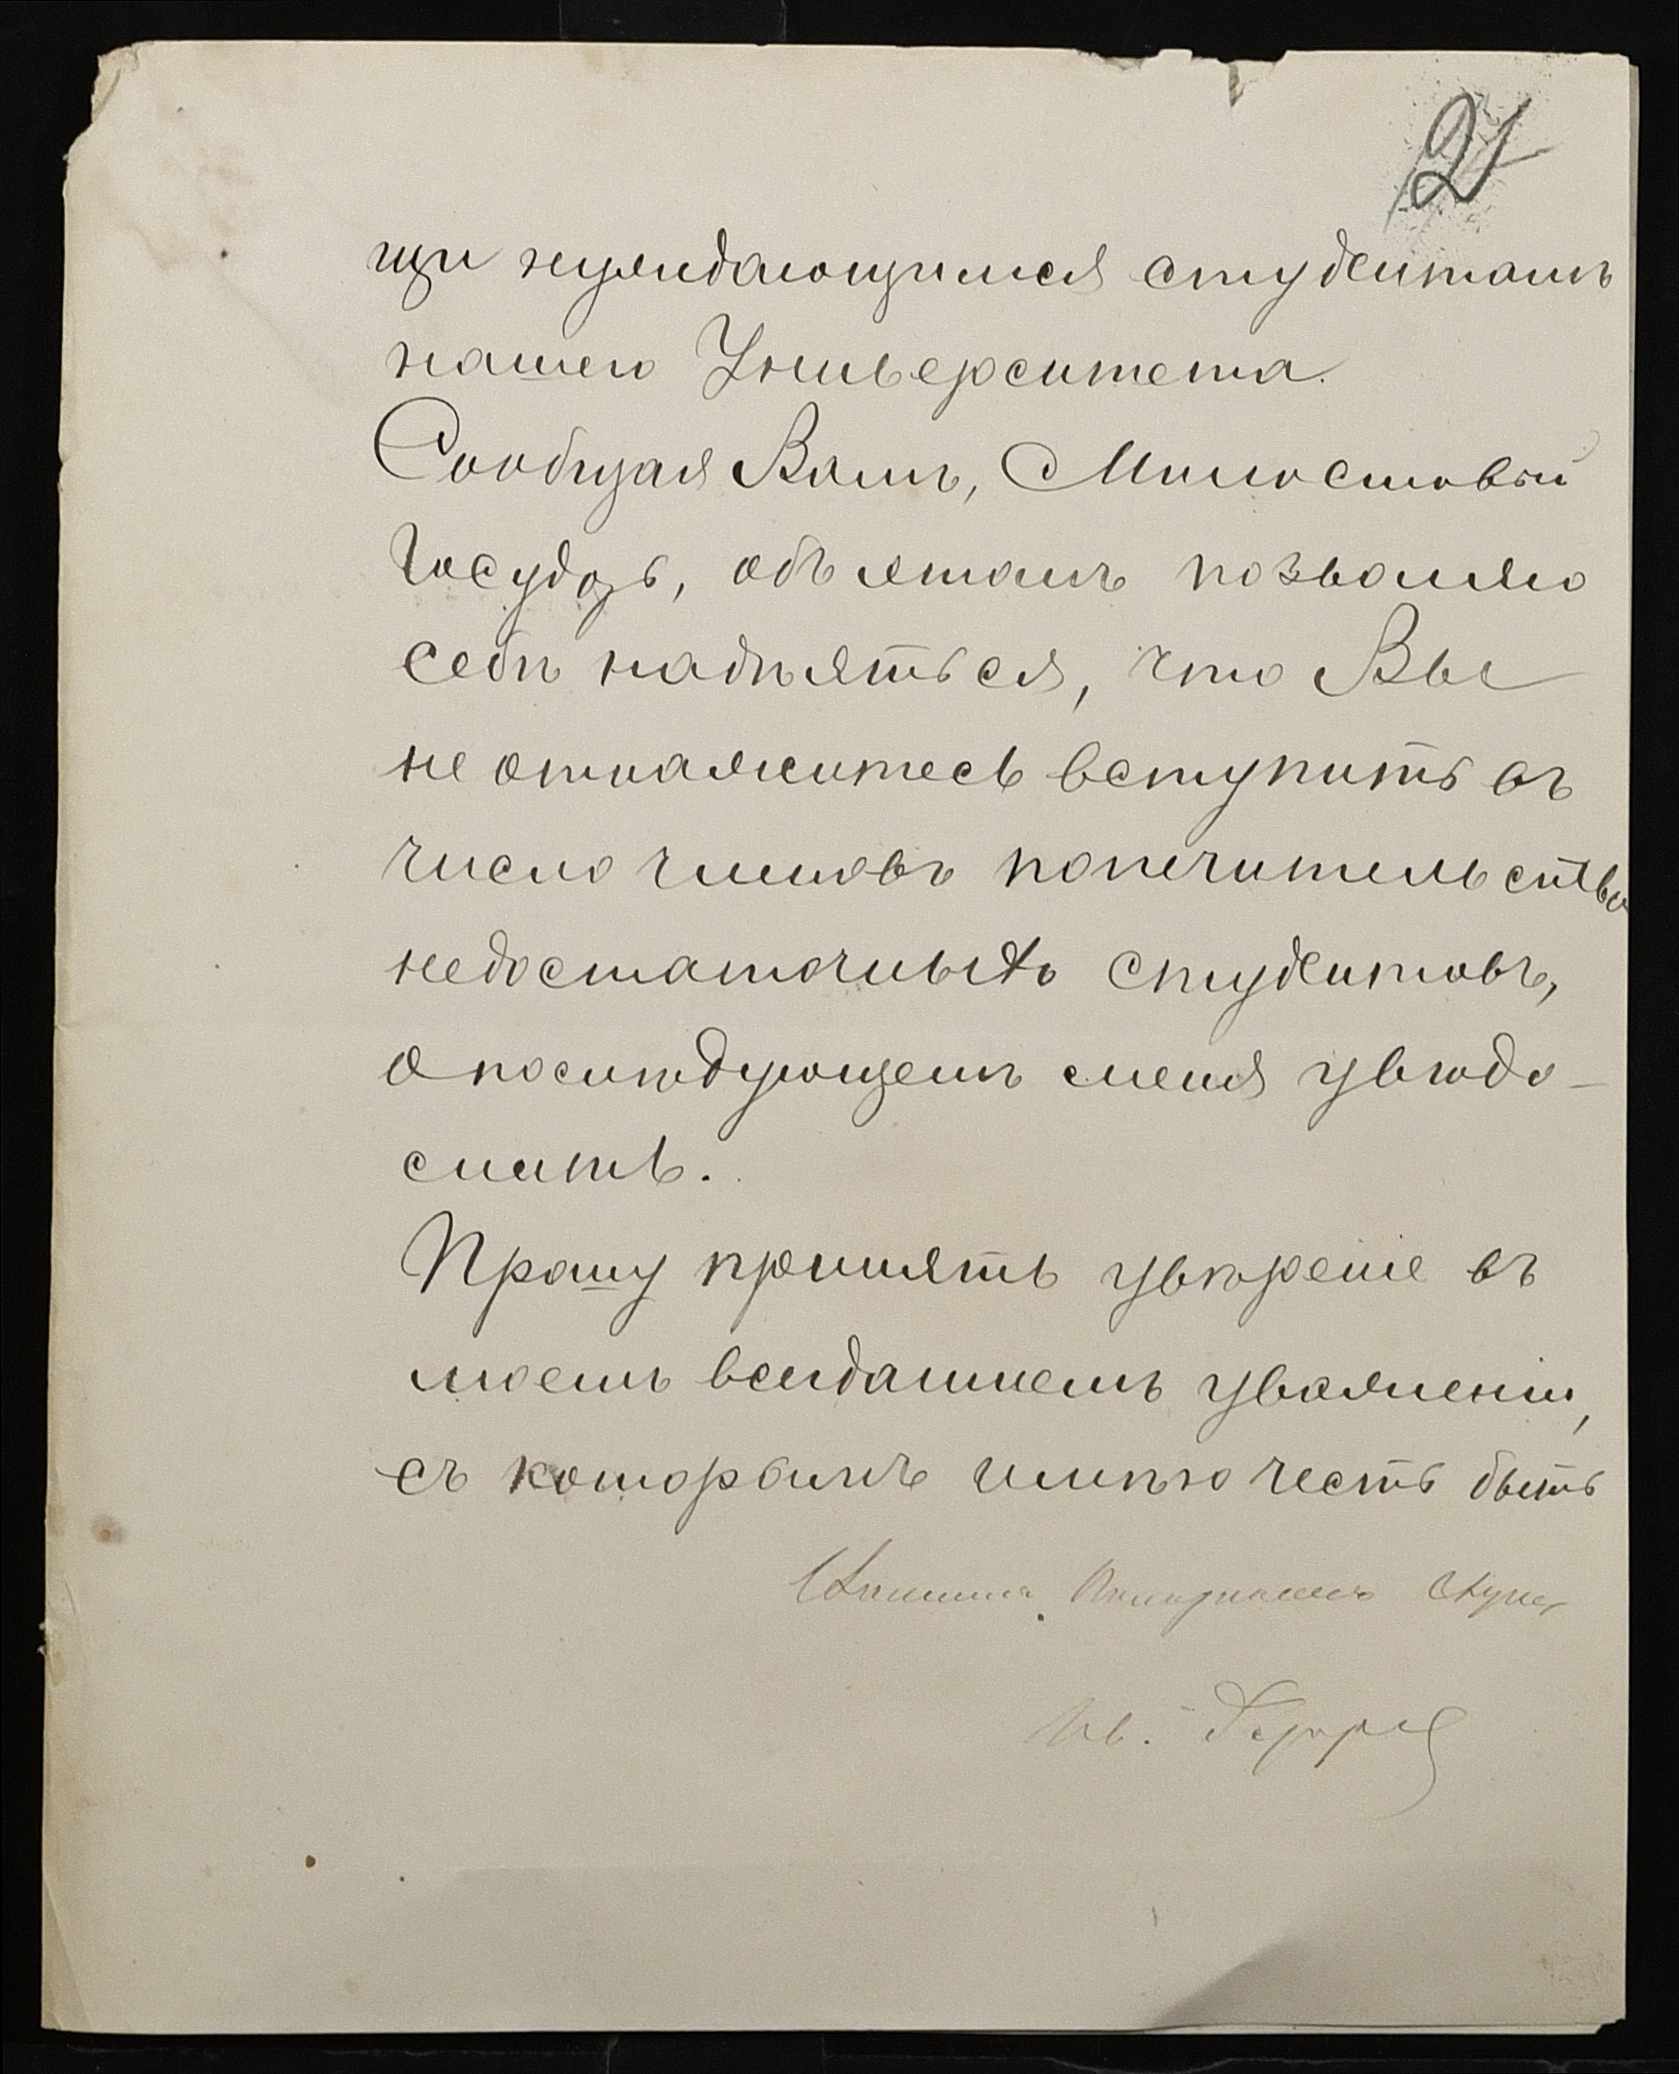 2
щи нуждающимся студентамъ
нашего Университета.
Сообщая Вамъ, Милостивый
Государь, объ этомъ позволяю
себѣ надѣяться, что Вы
не откажитесь вступить въ
число членовъ попечительства
недостаточныхъ студентовъ,
о послѣдующемъ меня увѣдо-
мить.
Прошу принять увѣреніе въ
моемъ всегдашнемъ уваженіи,
съ которымъ имѣю честь быть
Вашимъ покорнымъ слугою
Ив.